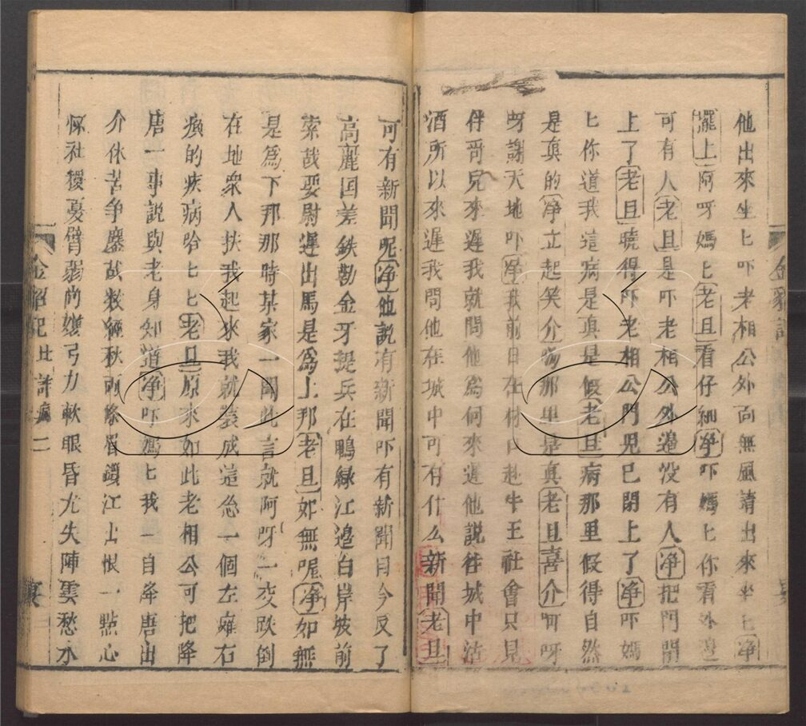 他出來坐匕吓老相公外面無風請出來坐匕淨
擺上阿呀媽匕老旦看仔細淨吓媽匕你看外邊
可有人老旦是吓老相公外邊沒有人淨把門關
上了老旦曉得吓老相公門兒已閉上了淨吓媽
匕你道我這病是真是假老旦病那里假得自然
是真的淨立起笑介病那里是真老旦喜介阿呀
呀謝天地吓淨我前日在村口赴牛王社會只見
伴哥兒來遲我就問他爲何來遲他説往城中沽
酒所以來遲我問他在城中可有什么新聞老旦
可有新聞呢淨他説有新聞吓有新聞目今反了
高麗国差鉄勒金牙提兵在鴨綠江邉白岸坡前
索戰要尉遲出馬是爲上邦老旦如無呢淨如無
是爲下邦那時某家一聞此言就阿呀一交跌倒
在地衆人扶我起來我就裝成這等一個左癱右
瘓的疾病哈匕匕老旦原來如此老相公可把降
唐一事説與老身知道淨吓媽匕我一自降唐出
介休苦爭鏖戰数經秋兩條眉鎖江山恨一點心
懷社稷憂臂弱尚嫌弓力軟眼昏尤失陣雲愁水
金貂記 北詐瘋 二
金貂記